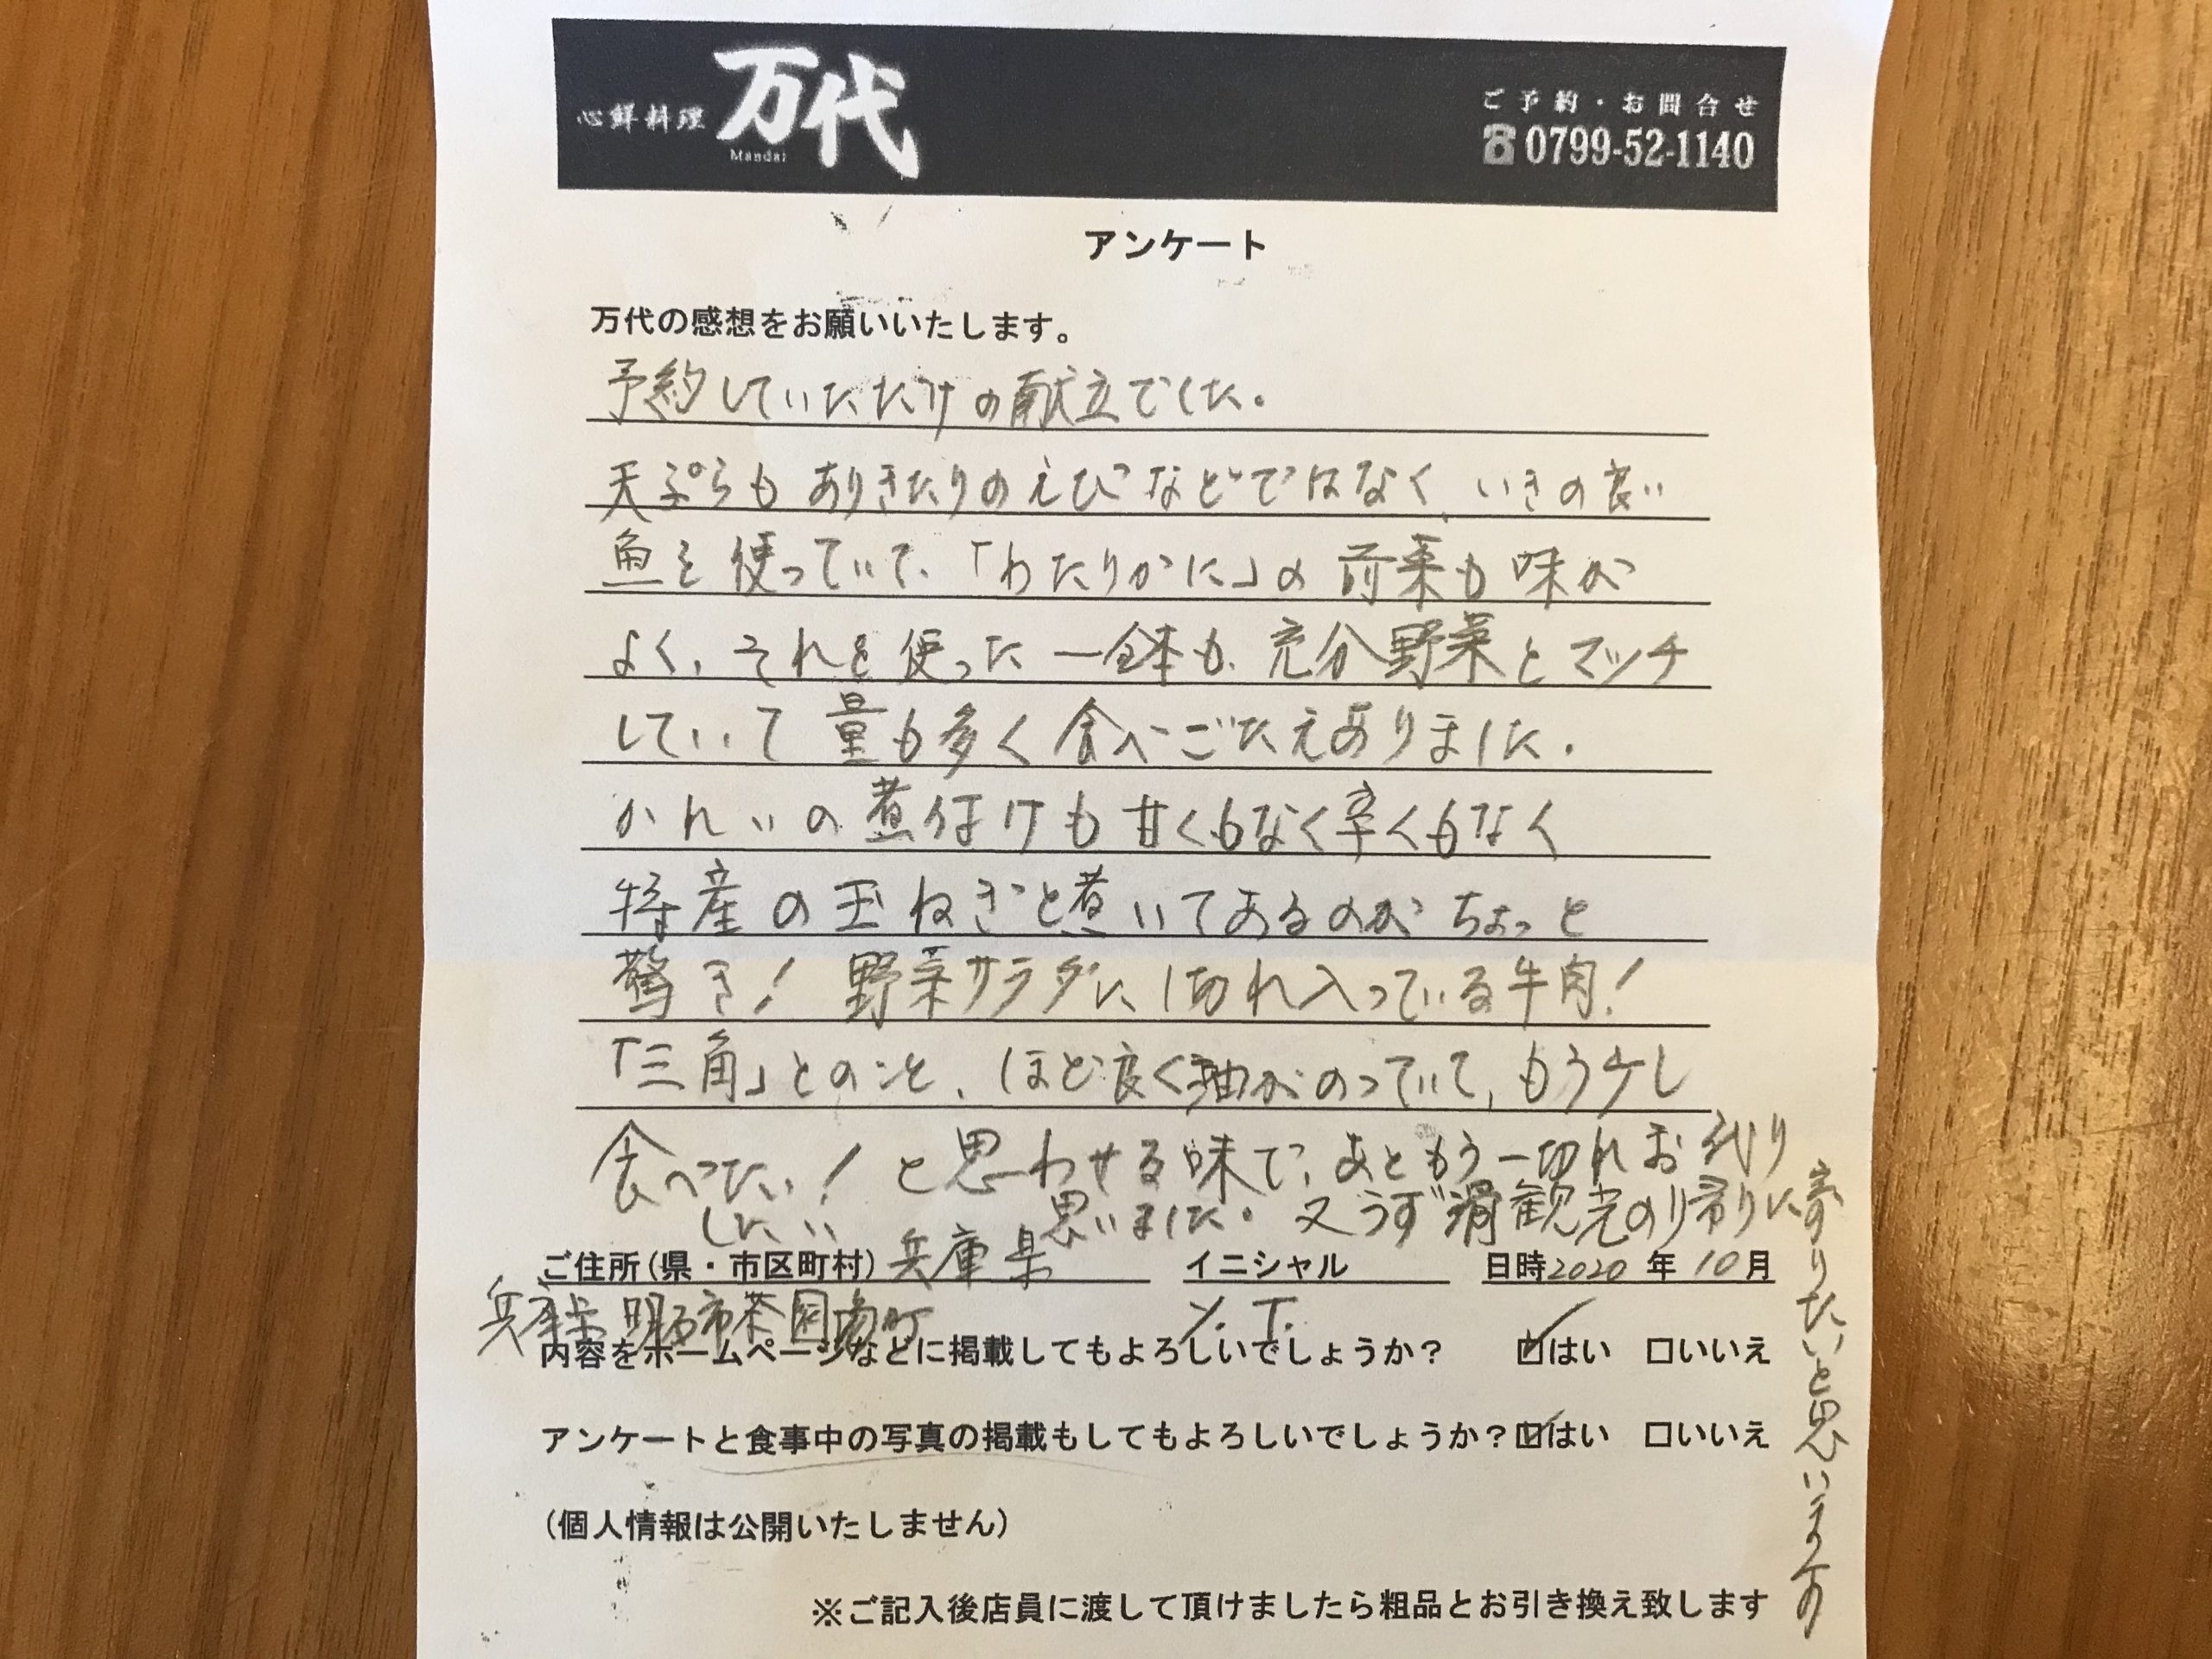 心鮮料理 万代
Mandai
ご予約・お問合せ
☎0799-52-1140
アンケート
万代の感想をお願いいたします。
予約していただけの献立でした。
天ぷらもありきたりのえびなどではなく、いきの良い
魚を使っていて、「わたりかに」の前菜も味が
よく、それを使った一鉢も、充分野菜とマッチ
していて量も多く食べごたえありました。
かれいの煮付けも甘くもなく辛くもなく
特産の玉ねぎと煮いてあるのがちょっと
驚き！野菜サラダに1切れ入っている牛肉！
「三角」とのこと、ほど良く油がのっていて、もう少し
食べたい！と思わせる味で、あともう一切れお代り
したい 思いました。又うず潮観光の帰りに
寄りたいと思いますの
ご住所(県・市区町村) 兵庫県 イニシャル 日時2020年10月
兵庫県明石市茶園場町 Y.T.
内容をホームページなどに掲載してもよろしいでしょうか？ ☑はい □いいえ
アンケートと食事中の写真の掲載もしてもよろしいでしょうか？☑はい □いいえ
(個人情報は公開いたしません)
※ご記入後店員に渡して頂けましたら粗品とお引き換え致します